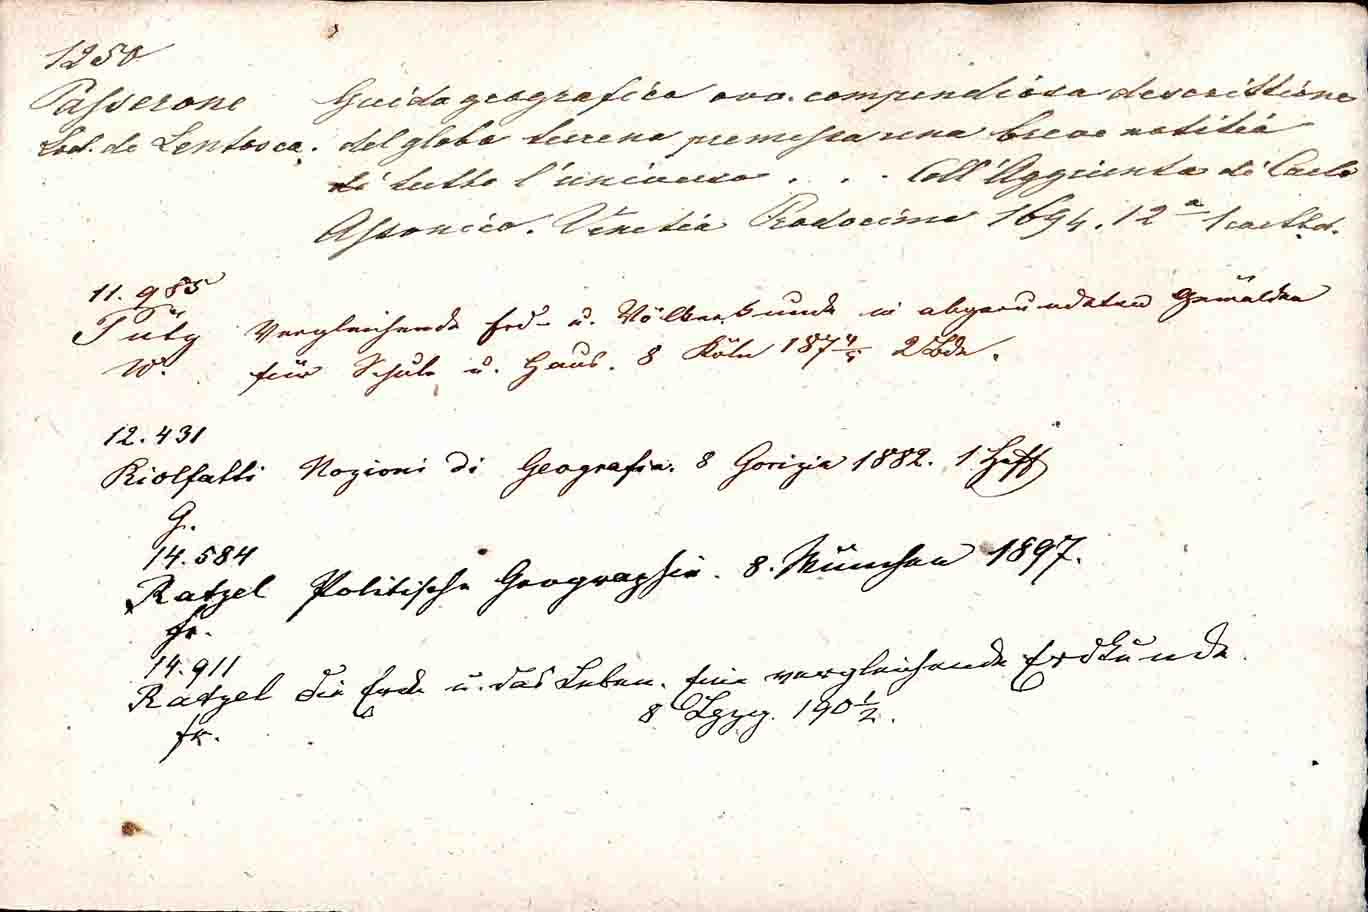 1250
Passerone Guida geografica ovo. compendiosa descrittione
Lod. da Lentosca. del globo terreno premessa una breve notitia
di tutto l'universo . . . Coll' Aggiunta di Carlo
Assonico. Venetia Prodocimo 1694. 12a 1 cart.
11.985
Pütz Vergleichende Erd- u. Völkerkunde in abgerundeten Gemälden
W. für Schule u. Haus. 8 Köln 187 4/5 2 Bde.
12.431
Riolfatti Nozioni di Geografia. 8 Gorizia 1882. 1 Heft
G.
14.584
Ratzel Politische Geographie. 8. München 1897.
Fr.
14.911
Ratzel Die Erde u. das Leben. Eine vergleichende Erdkunde.
Fr. 8 Lpzg. 190 1/2.